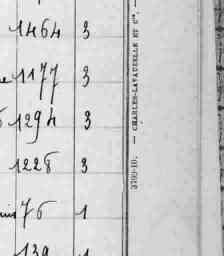 1464 3
1177 3
1294 3
1228 3
76 1
139 1
3700-10. — CHARLES-LAVAUZELLE ET Cie.